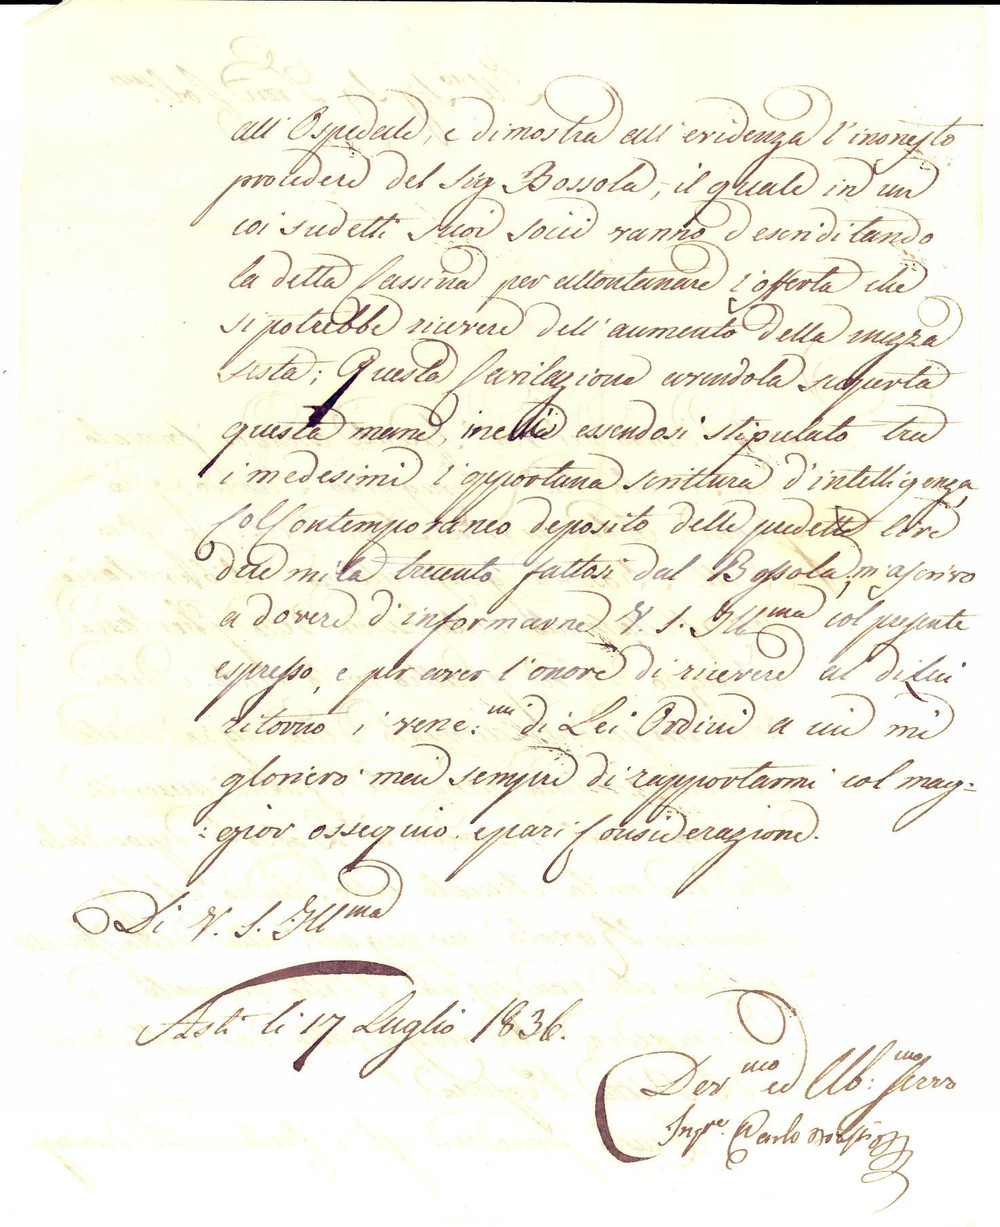 all' Ospedale, e dimostra all' evidenza l'inonesto
procedere del Sig. Bossola, il quale in un
coi sudetti suoi socii vanno discreditando
la detta Cassina per allontanare l'offerta che
si potrebbe ricevere dell' aumento della mezza
sesta; Questa Cavilazione avendola scoperta
questa mane, in essendosi stipulato tra
i medesimi l'opportuna scrittura d'intelligenza,
Col Contemporaneo deposito delle predette lire
due mila trecento fattosi dal Bossola, m'ascrivo
a dovere d'informarne V. S. Ill.ma col presente
espresso, e per aver l'onore di ricevere al di lui
ritorno i vene.mi di Lei Ordini a cui mi
glorierò mai sempre di rapportarmi col mag-
-gior ossequio e pari Considerazione.
Di V. S. Ill.ma
Asti li 17 Luglio 1836.
Dev.mo ed Ob.mo Servo
Ing.re Carlo